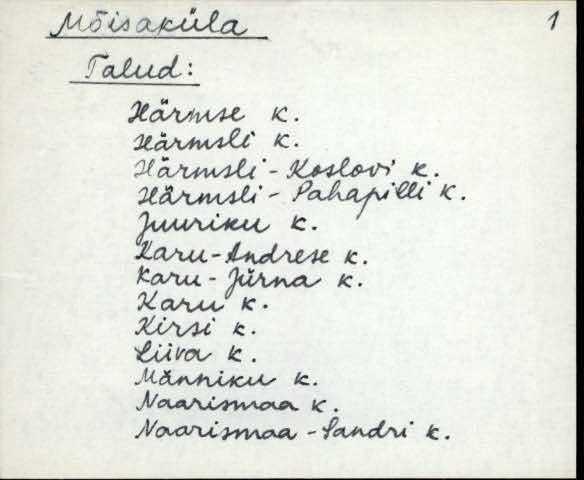 Mõisaküla 1
Talud:
Härmse k.
Härmsli k.
Härmsli-Koslovi k.
Härmsli-Pahapilli k.
Juuriku k.
Karu-Andrese k.
Karu-Jürna k.
Karu k.
Kirsi k.
Liiva k.
Männiku k.
Naarismaa k.
Naarismaa-Sandri k.